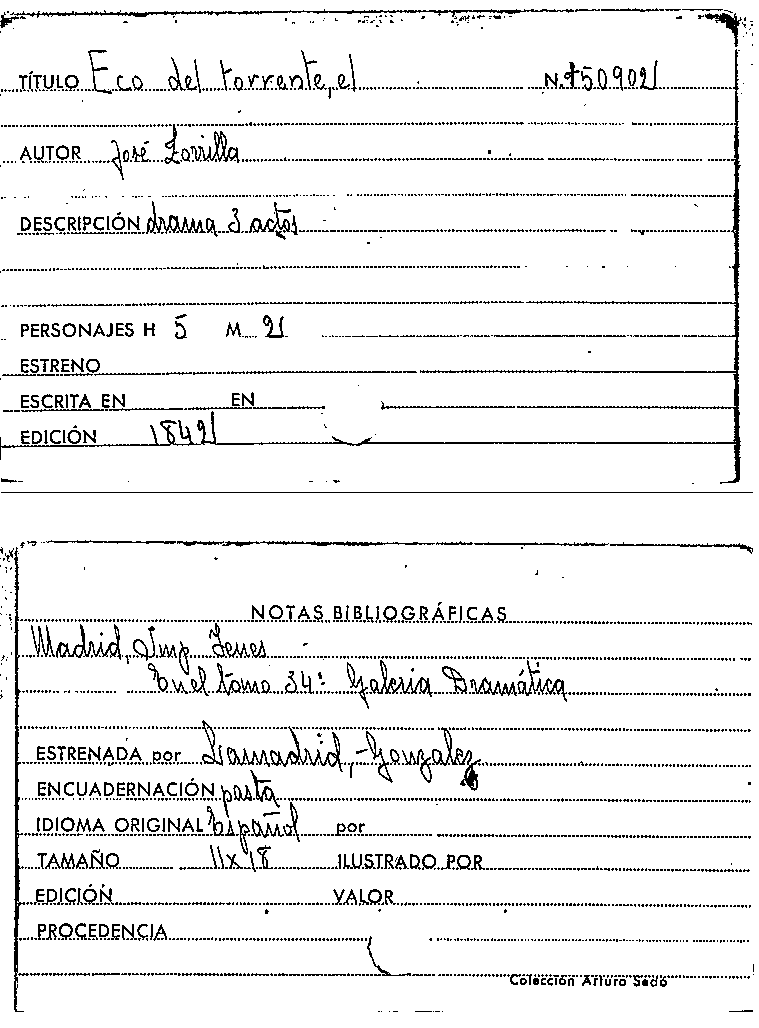 TÍTULO Eco del torrente, el N.º 50902
AUTOR José Zorrilla
DESCRIPCIÓN drama 3 actos
PERSONAJES H 5 M 2
ESTRENO
ESCRITA EN EN
EDICIÓN 1842
NOTAS BIBLIOGRÁFICAS
Madrid, Imp. Yenes
En el tomo 34º Galeria Dramática
ESTRENADA por Lamadrid,-Gonzalez
ENCUADERNACIÓN pasta
IDIOMA ORIGINAL Español por
TAMAÑO 11x18 ILUSTRADO POR
EDICIÓN VALOR
PROCEDENCIA
Colección Arturo Sedó